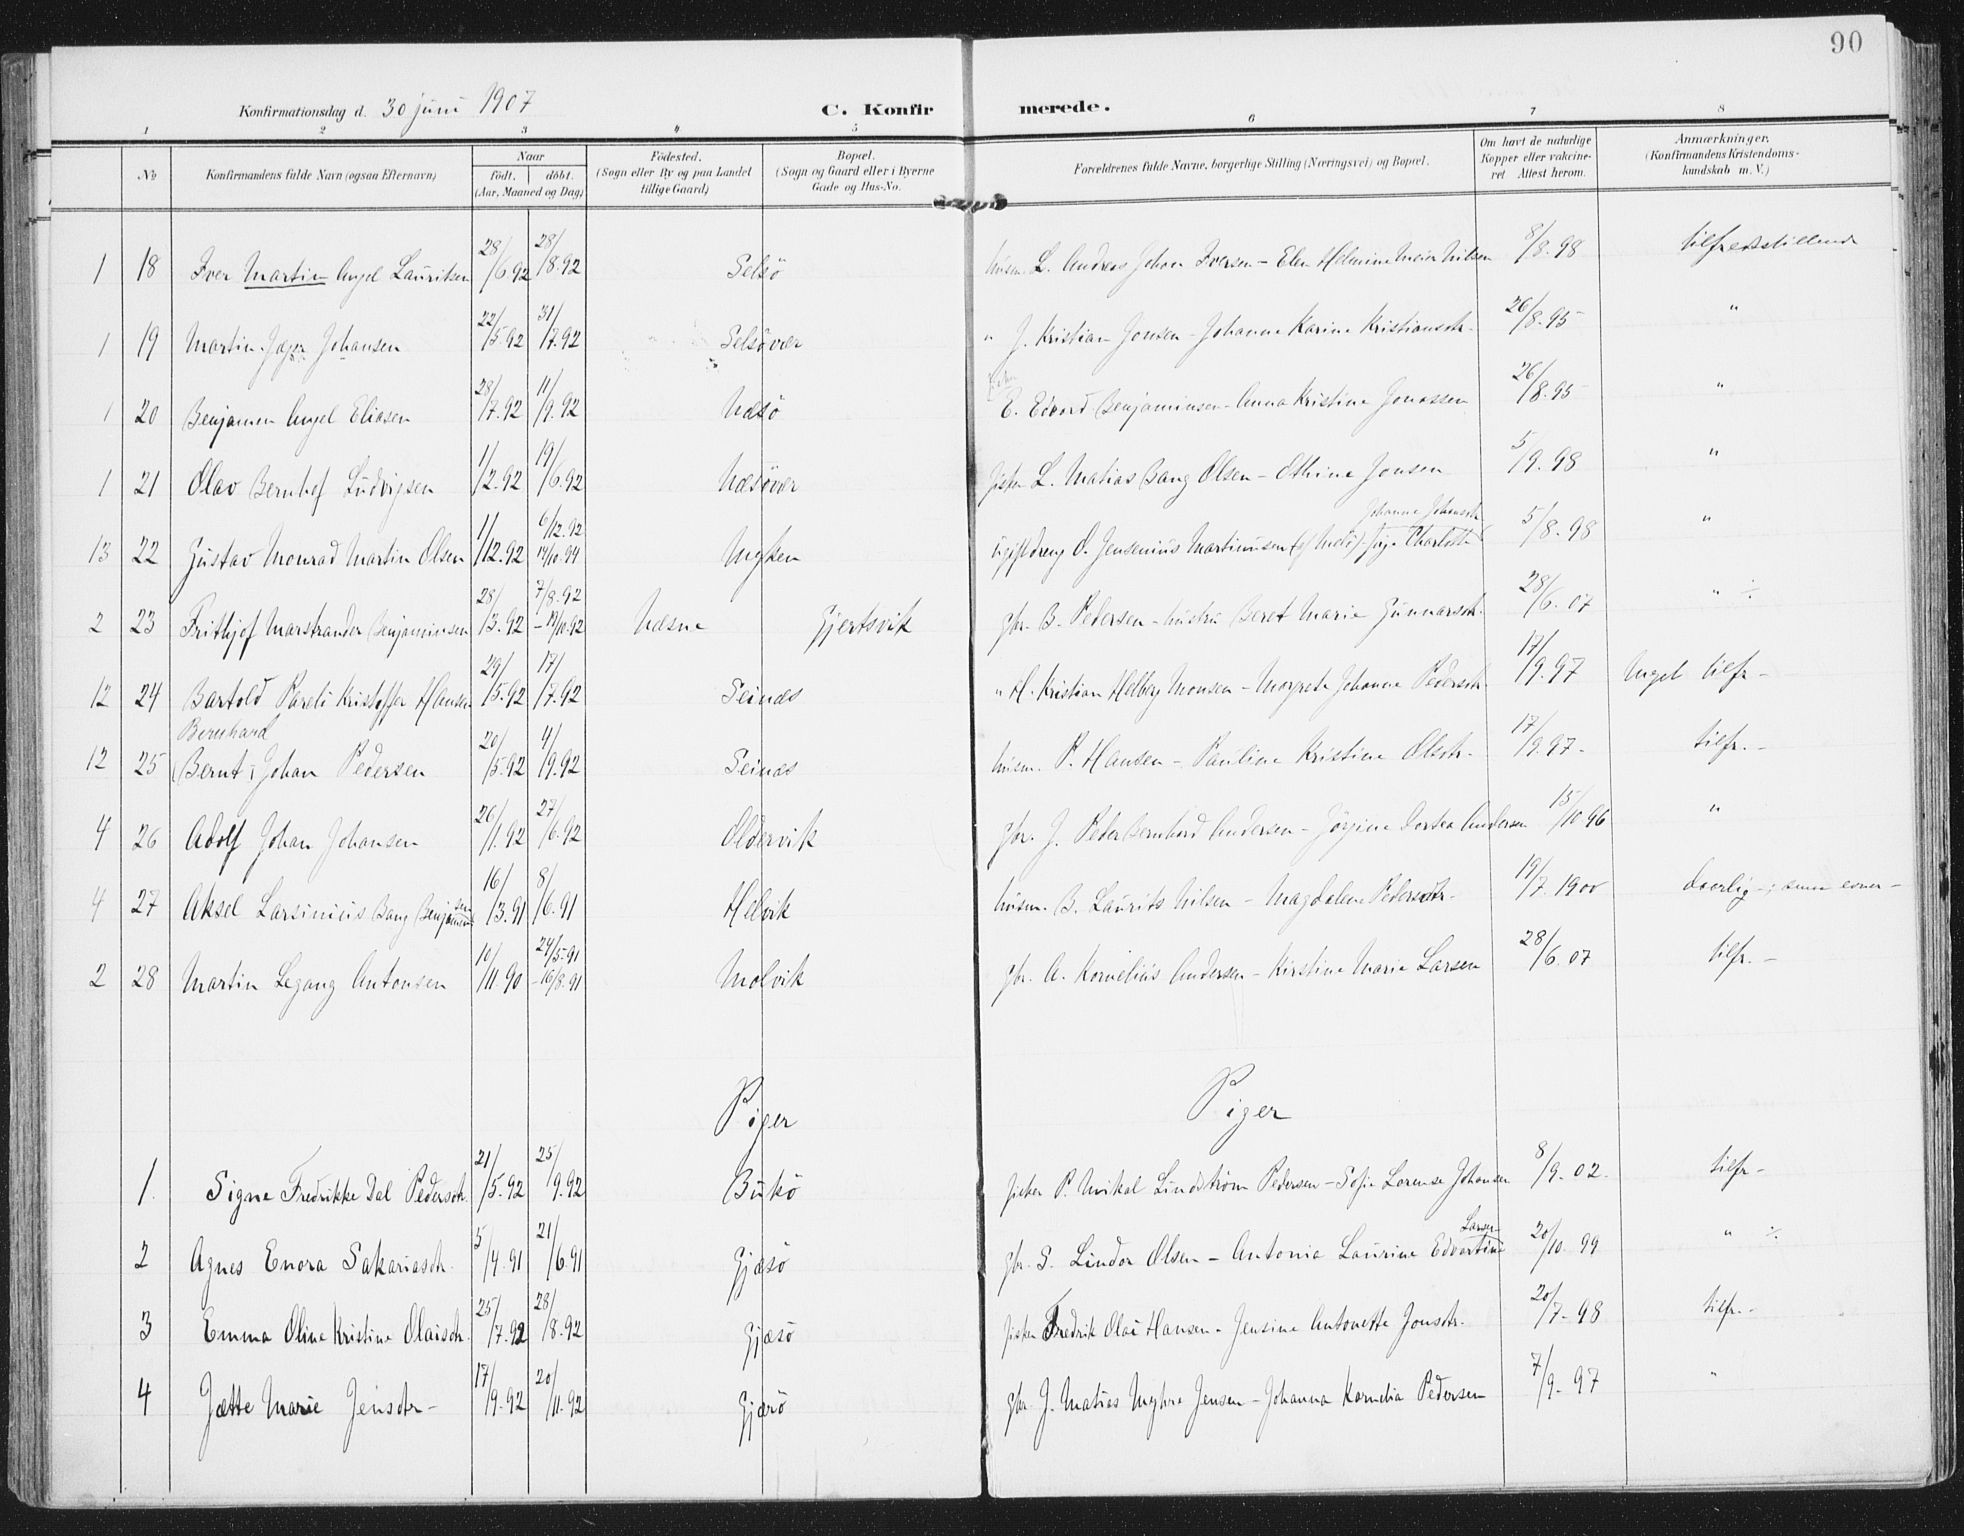 90
Konfirmationsdag d. 30 juni 1907 C. Konfir merede.
1 2 3 4 5 6 7 8
No Konfirmandens fulde Navn (ogsaa Efternavn) Naar födt. döbt. (Aar, Maaned og Dag) Födested. (Sogn eller By og paa Landet tillige Gaard) Bopæl. (Sogn og Gaard eller i Byerne Gade og Hus-No. Forældrenes fulde Navne, borgerlige Stilling (Næringsvei) og Bopæl. Om havt de naturlige Kopper eller vakcineret Attest herom. Anmærkninger. (Konfirmandens Kristendomskundskab m. V.)
1 18 Iver Martin Angel Lauritsen 28/6.92 28/8.92 Selsö husm. L. Andreas Johan Iversen - Elen Helmine Meier Nilsen 8/8.98 tilfredsstillende
1 19 Martin Johansen 22/5.92 31/7.92 Selsövær " J. Kristian Jonsen - Johanne Karine Kristiansdtr. 26/8.95 "
1 20 Benjamin Angel Eliasen 28/7.92 11/9.92 Næsö E. Edvard Benjaminsen - Anna Kristine Jonassen 26/8.95 "
1 21 Olav Bernhof Ludvigsen 1/2.92 19/6.92 Næsövær fisker L. Matias Bang Olsen - Othine Jonsen 5/9.98 "
13 22 Gustav Monrad Martin Olsen 1/12.92 6/12.92 Myken ugift dreng O. Jensenius Martinusen Pige Charlotte Johanne Johansdtr 5/8.98 "
2 23 Frithjof Marstrander Benjaminsen 28/3.92 7/8.92 - 17/10.92 Næsne Gjertsvik gbr. B. Pedersen - hustru Beret Marie Gunnarsdtr. 28/6.07 " ÷
12 24 Bartold Pareli Kristoffer Hansen 29/5.92 17/7.92 Seines " H. Kristian Helberg Monsen - Margrete Johanne Pedersdtr. 17/9.97 Meget tilfr -
12 25 Bernt Bernhard Johan Pedersen 20/5.92 4/9.92 Seines husm. P. Hansen - Pauline Kristine Olsdtr. 17/9.97 - tilfr. -
4 26 Adolf Johan Johansen 26/1.92 27/6.92 Oldervik gbr. J. Peder Bernhard Andersen - Jörgine Dortea Andersen 15/10 96 "
4 27 Aksel Larsinius Bang Benjaminsen 16/3.91 8/6.91 Helvik husm. B. Laurits Nilsen - Magdalene Pedersdtr. 19/7.1900 daarlig - ; evner -
2 28 Martin Legang Antonsen 10/11.90 24/5.91 - 16/8.91 Molvik gbr. A. Kornelius Andersen - Kirstine Marie Larsen 28/6.07 tilfr. -
Piger Piger
1. Signe Fredrikke Dal Pedersdtr. 21/5.92 25/9.92 Bukö fisker P. Mikal Lindström Pedersen - Sofie Lorense Johansen 8/9.02. tilfr -
2 Agnes Enora Sakariasdtr. 5/4.91 21/6.91 Gjæsö gbr. S. Lindor Olsen - Antonia Laurine Edvartine Larsen 20/10.99 " ÷
3 Emma Oline Kristine Olaisdtr. 25/7.92 28/8.92 Gjæsö fisker Fredrik Olai Hansen - Jensine Antonette Jonsdtr. 20/7.98 tilfr. -
4 Jætte Marie Jensdtr - 17/9.92 20/11.92 Gjærö gbr. J. Matias Myhre Jensen - Johanna Kornelia Pedersen 7/9.97 "